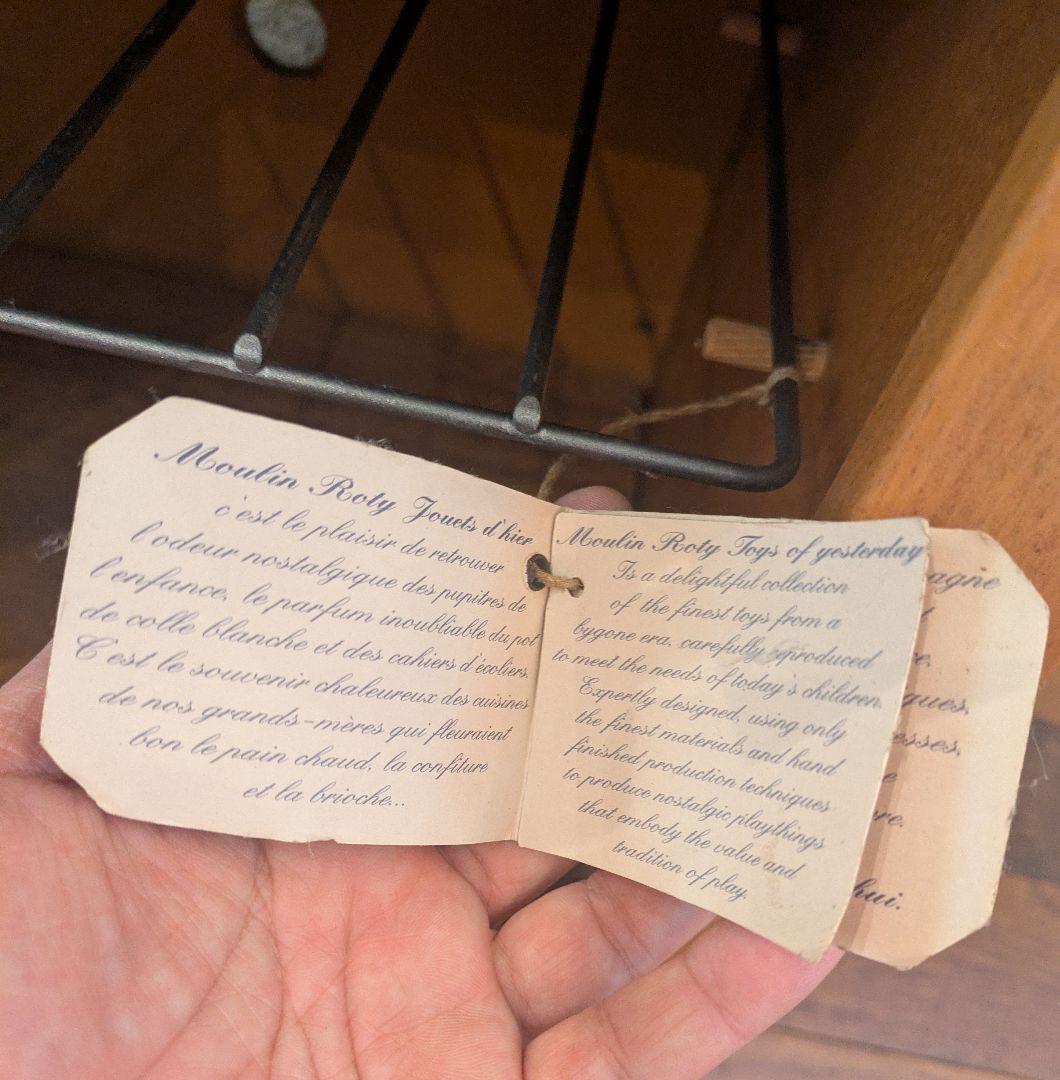 Moulin Roty Jouets d'hier
c'est le plaisir de retrouver
l'odeur nostalgique des pupitres de
l'enfance, le parfum inoubliable du pot
de colle blanche et des cahiers d'écoliers.
C'est le souvenir chaleureux des cuisines
de nos grands-mères qui fleuraient
bon le pain chaud, la confiture
et la brioche...
Moulin Roty Toys of yesterday
Is a delightful collection
of the finest toys from a
bygone era, carefully reproduced
to meet the needs of today's children.
Expertly designed, using only
the finest materials and hand
finished production techniques
to produce nostalgic playthings
that embody the value and
tradition of play.